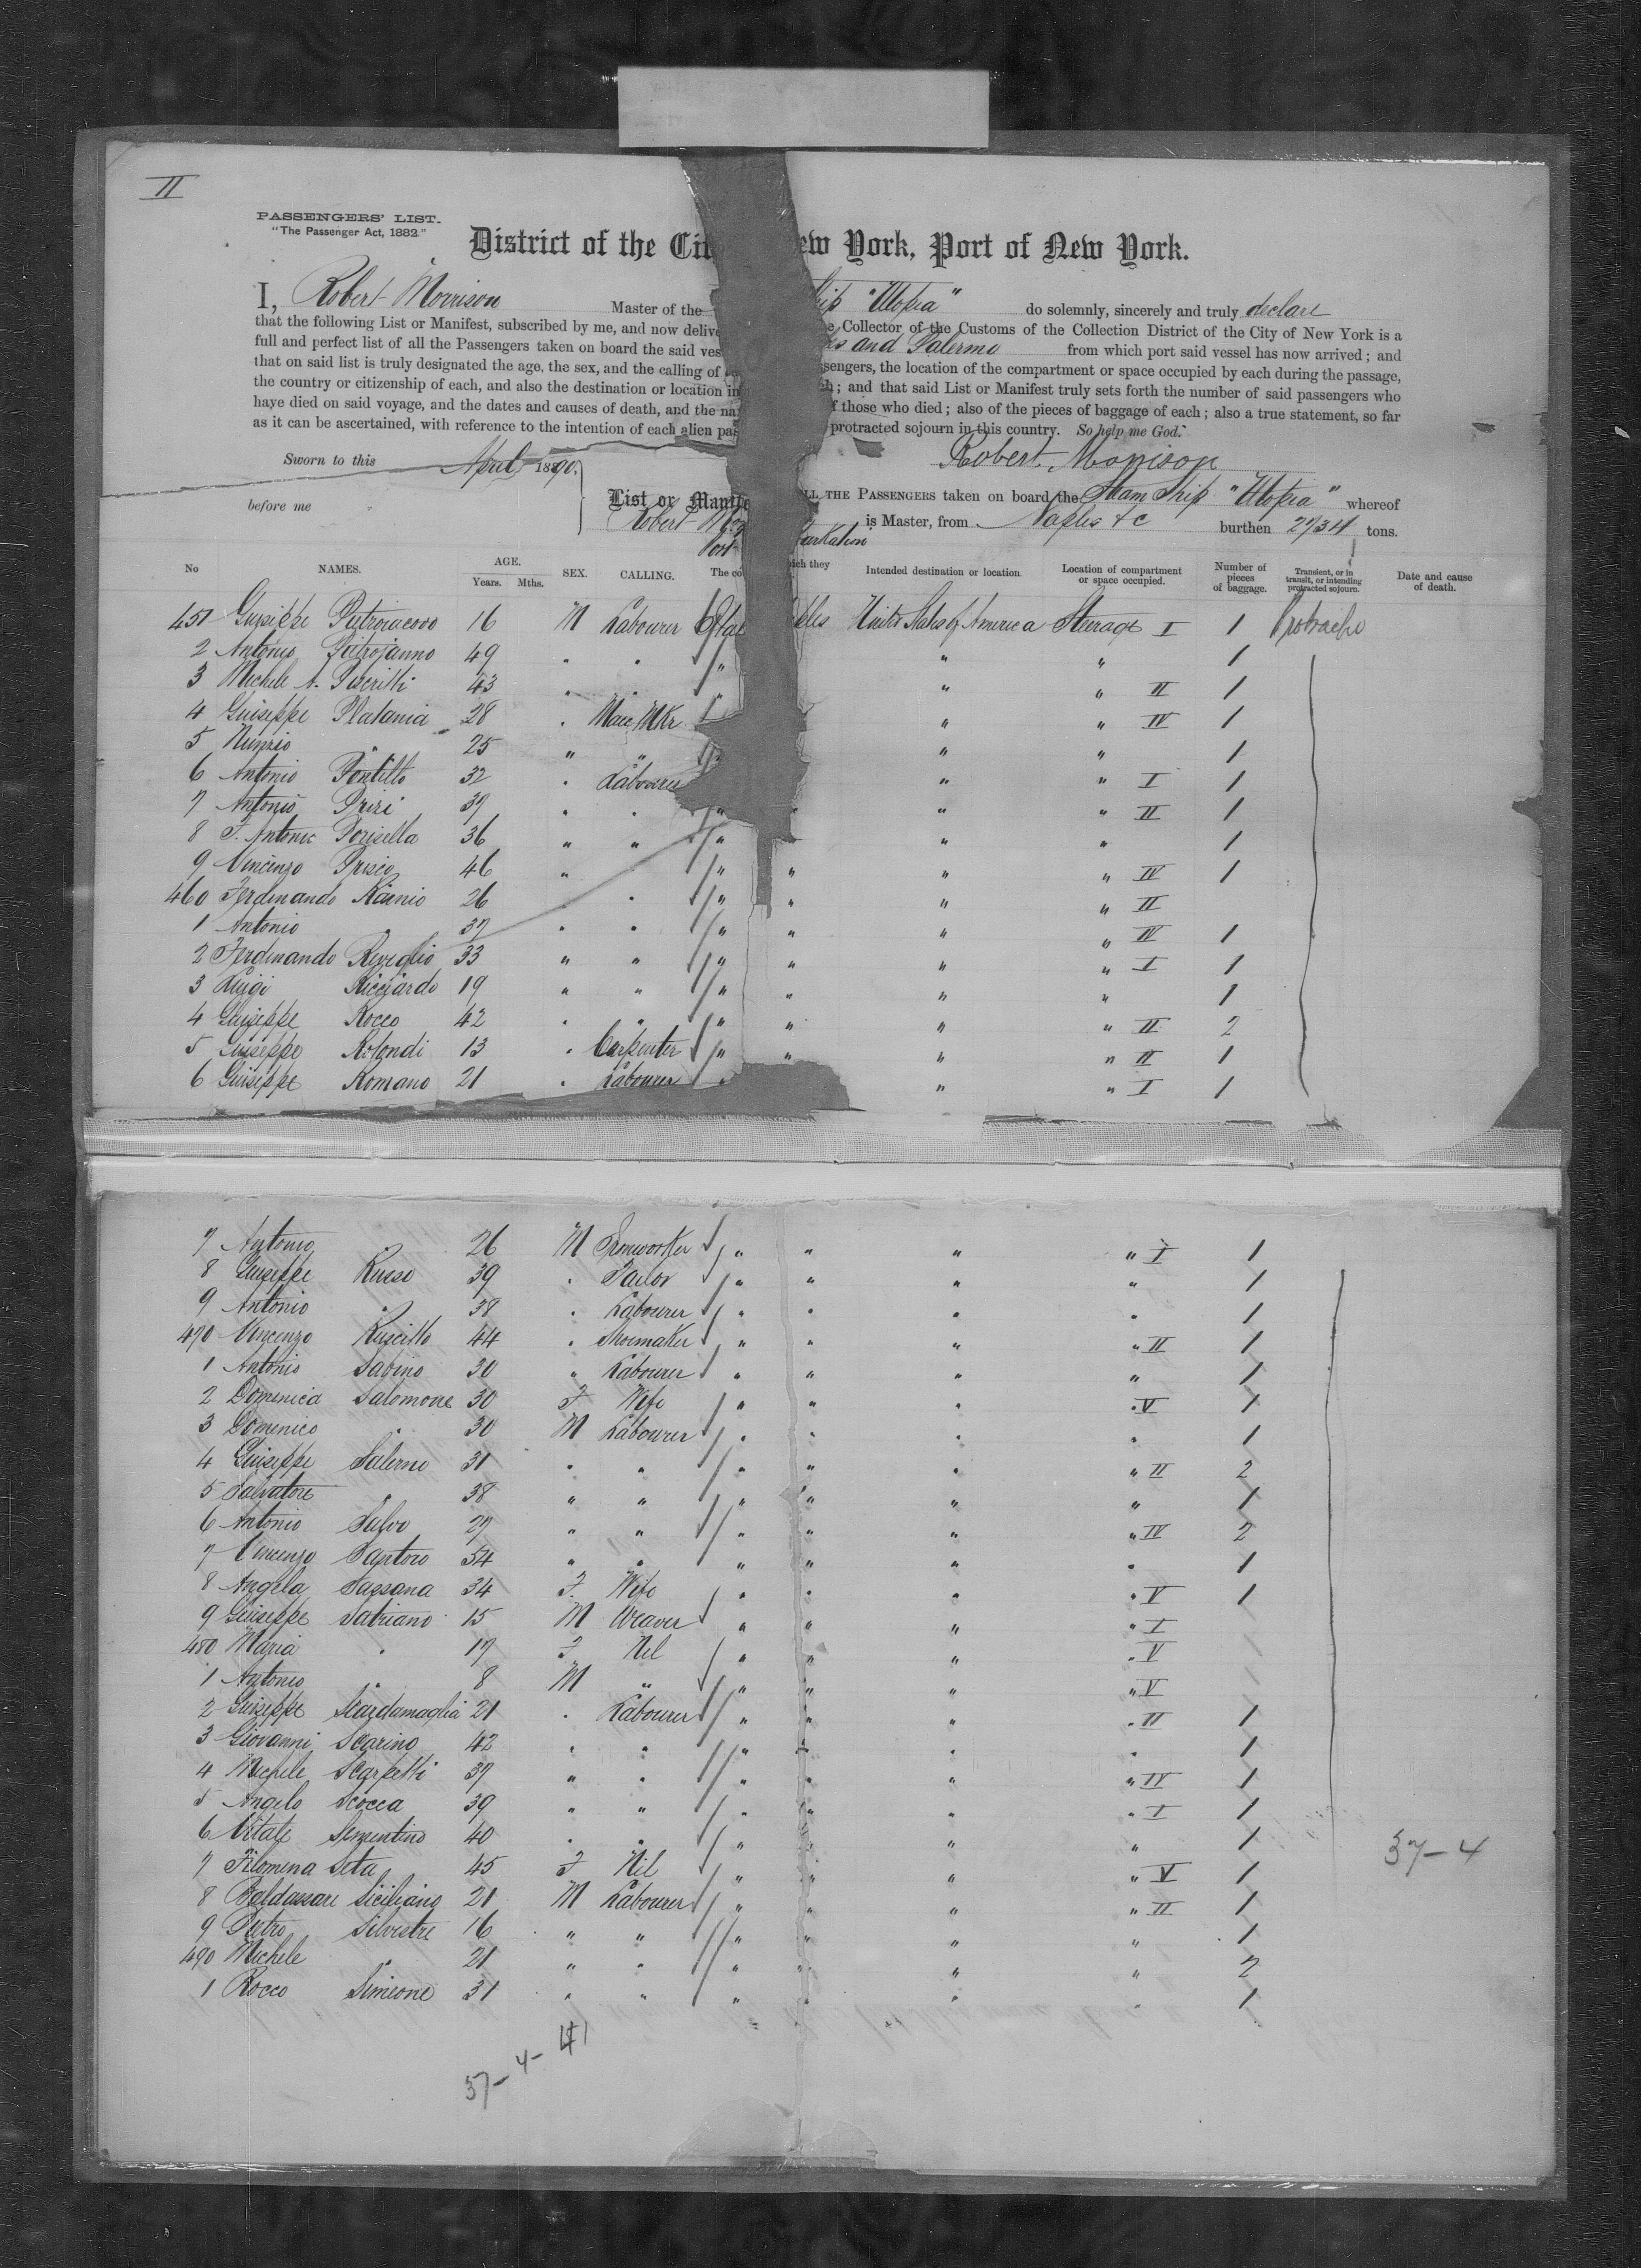 II
PASSENGERS' LIST.
"The Passenger Act, 1882"
District of the Cit ew York, Port of New York.
I, Robert Morrison Master of the ship "Utopia" do solemnly, sincerely and truly declare
that the following List or Manifest, subscribed by me, and now delive e Collector of the Customs of the Collection District of the City of New York is a
full and perfect list of all the Passengers taken on board the said ves es and Palermo from which port said vessel has now arrived; and
that on said list is truly designated the age, the sex, and the calling of ssengers, the location of the compartment or space occupied by each during the passage,
the country or citizenship of each, and also the destination or location in ; and that said List or Manifest truly sets forth the number of said passengers who
have died on said voyage, and the dates and causes of death, and the na f those who died; also of the pieces of baggage of each; also a true statement, so far
as it can be ascertained, with reference to the intention of each alien pas protracted sojourn in this country. So help me God.
Sworn to this April 1890. Robert Morrison
before me List or Manife ALL THE PASSENGERS taken on board the Steam Ship "Utopia" whereof
Robert Mor is Master, from Naples &c burthen 2734 tons.
Port barkation
No NAMES. AGE. Years. Mths. SEX. CALLING. The co ich they Intended destination or location. Location of compartment or space occupied. Number of pieces of baggage. Transient, or in transit, or intending protracted sojourn. Date and cause of death.
451 Guiseppe Pietroiacovo 16 M Labourer Ital ples United States of America Steerage I 1 Protracted
2 Antonio Pietrojanno 49 " " " " " 1
3 Michele A. 43 " " " " " II 1
4 Guiseppe Platania 28 " Mace Mkr " " IV 1
5 Nunzio " 25 " " " " 1
6 Antonio Pontillo 32 " Labourer " " I 1
7 Antonio Prizi 39 " " " " " " II 1
8 F. Antonio Porisella 36 " " " " " 1
9 Vincenzo Prisco 46 " " " " " " IV 1
460 Ferdinando Rainio 26 " " " " " II
1 Antonio " 37 " " " " " " IV 1
2 Ferdinando Reveglio 33 " " " " " " I 1
3 Luigi Ricciardo 19 " " " " " " 1
4 Guiseppe Rocco 42 " " " " " " II 2
5 Guiseppe Rotondi 13 " Carpenter " " " " II 1
6 Guiseppe Romano 21 " Labourer " " " I 1
7 Antonio " 26 M Ironworker " " " " I 1
8 Guiseppe Russo 39 " Tailor " " " " 1
9 Antonio " 38 " Labourer " " " " 1
470 Vincenzo Ruscitto 44 " Shoemaker " " " " II 1
1 Antonio Sabino 30 " Labourer " " " " 1
2 Domenica Salomone 30 F Wife " " " " V 1
3 Domenico " 30 M Labourer " " " " 1
4 Guiseppe Salerno 31 " " " " " " II 2
5 Salvatore " 38 " " " " " " 1
6 Antonio Salvo 27 " " " " " " IV 2
7 Vincenzo Santoro 54 " " " " " " 1
8 Angela Sassana 34 F. Wife " " " " V 1
9 Guiseppe Satriano 15 M Weaver " " " " I
480 Maria " 17 F Nil " " " " V
1 Antonio " 8 M " " " " " V
2 Guiseppe Scardamaglia 21 " Labourer " " " " II 1
3 Giovanni Scarino 42 " " " " " " 1
4 Michele Scarpetti 37 " " " " " " IV 1
5 Angelo Scocca 39 " " " " " " I 1
6 Vitale Sementino 40 " " " " " " 1
7 Filomena Seta 45 F Nil " " " " V 1
37-4
8 Baldassare Siciliano 21 M Labourer " " " " II 1
9 Pietro Silvestre 16 " " " " " " 1
490 Michele " 21 " " " " " " 2
1 Rocco Simeone 31 " " " " " " 1
37-4-41